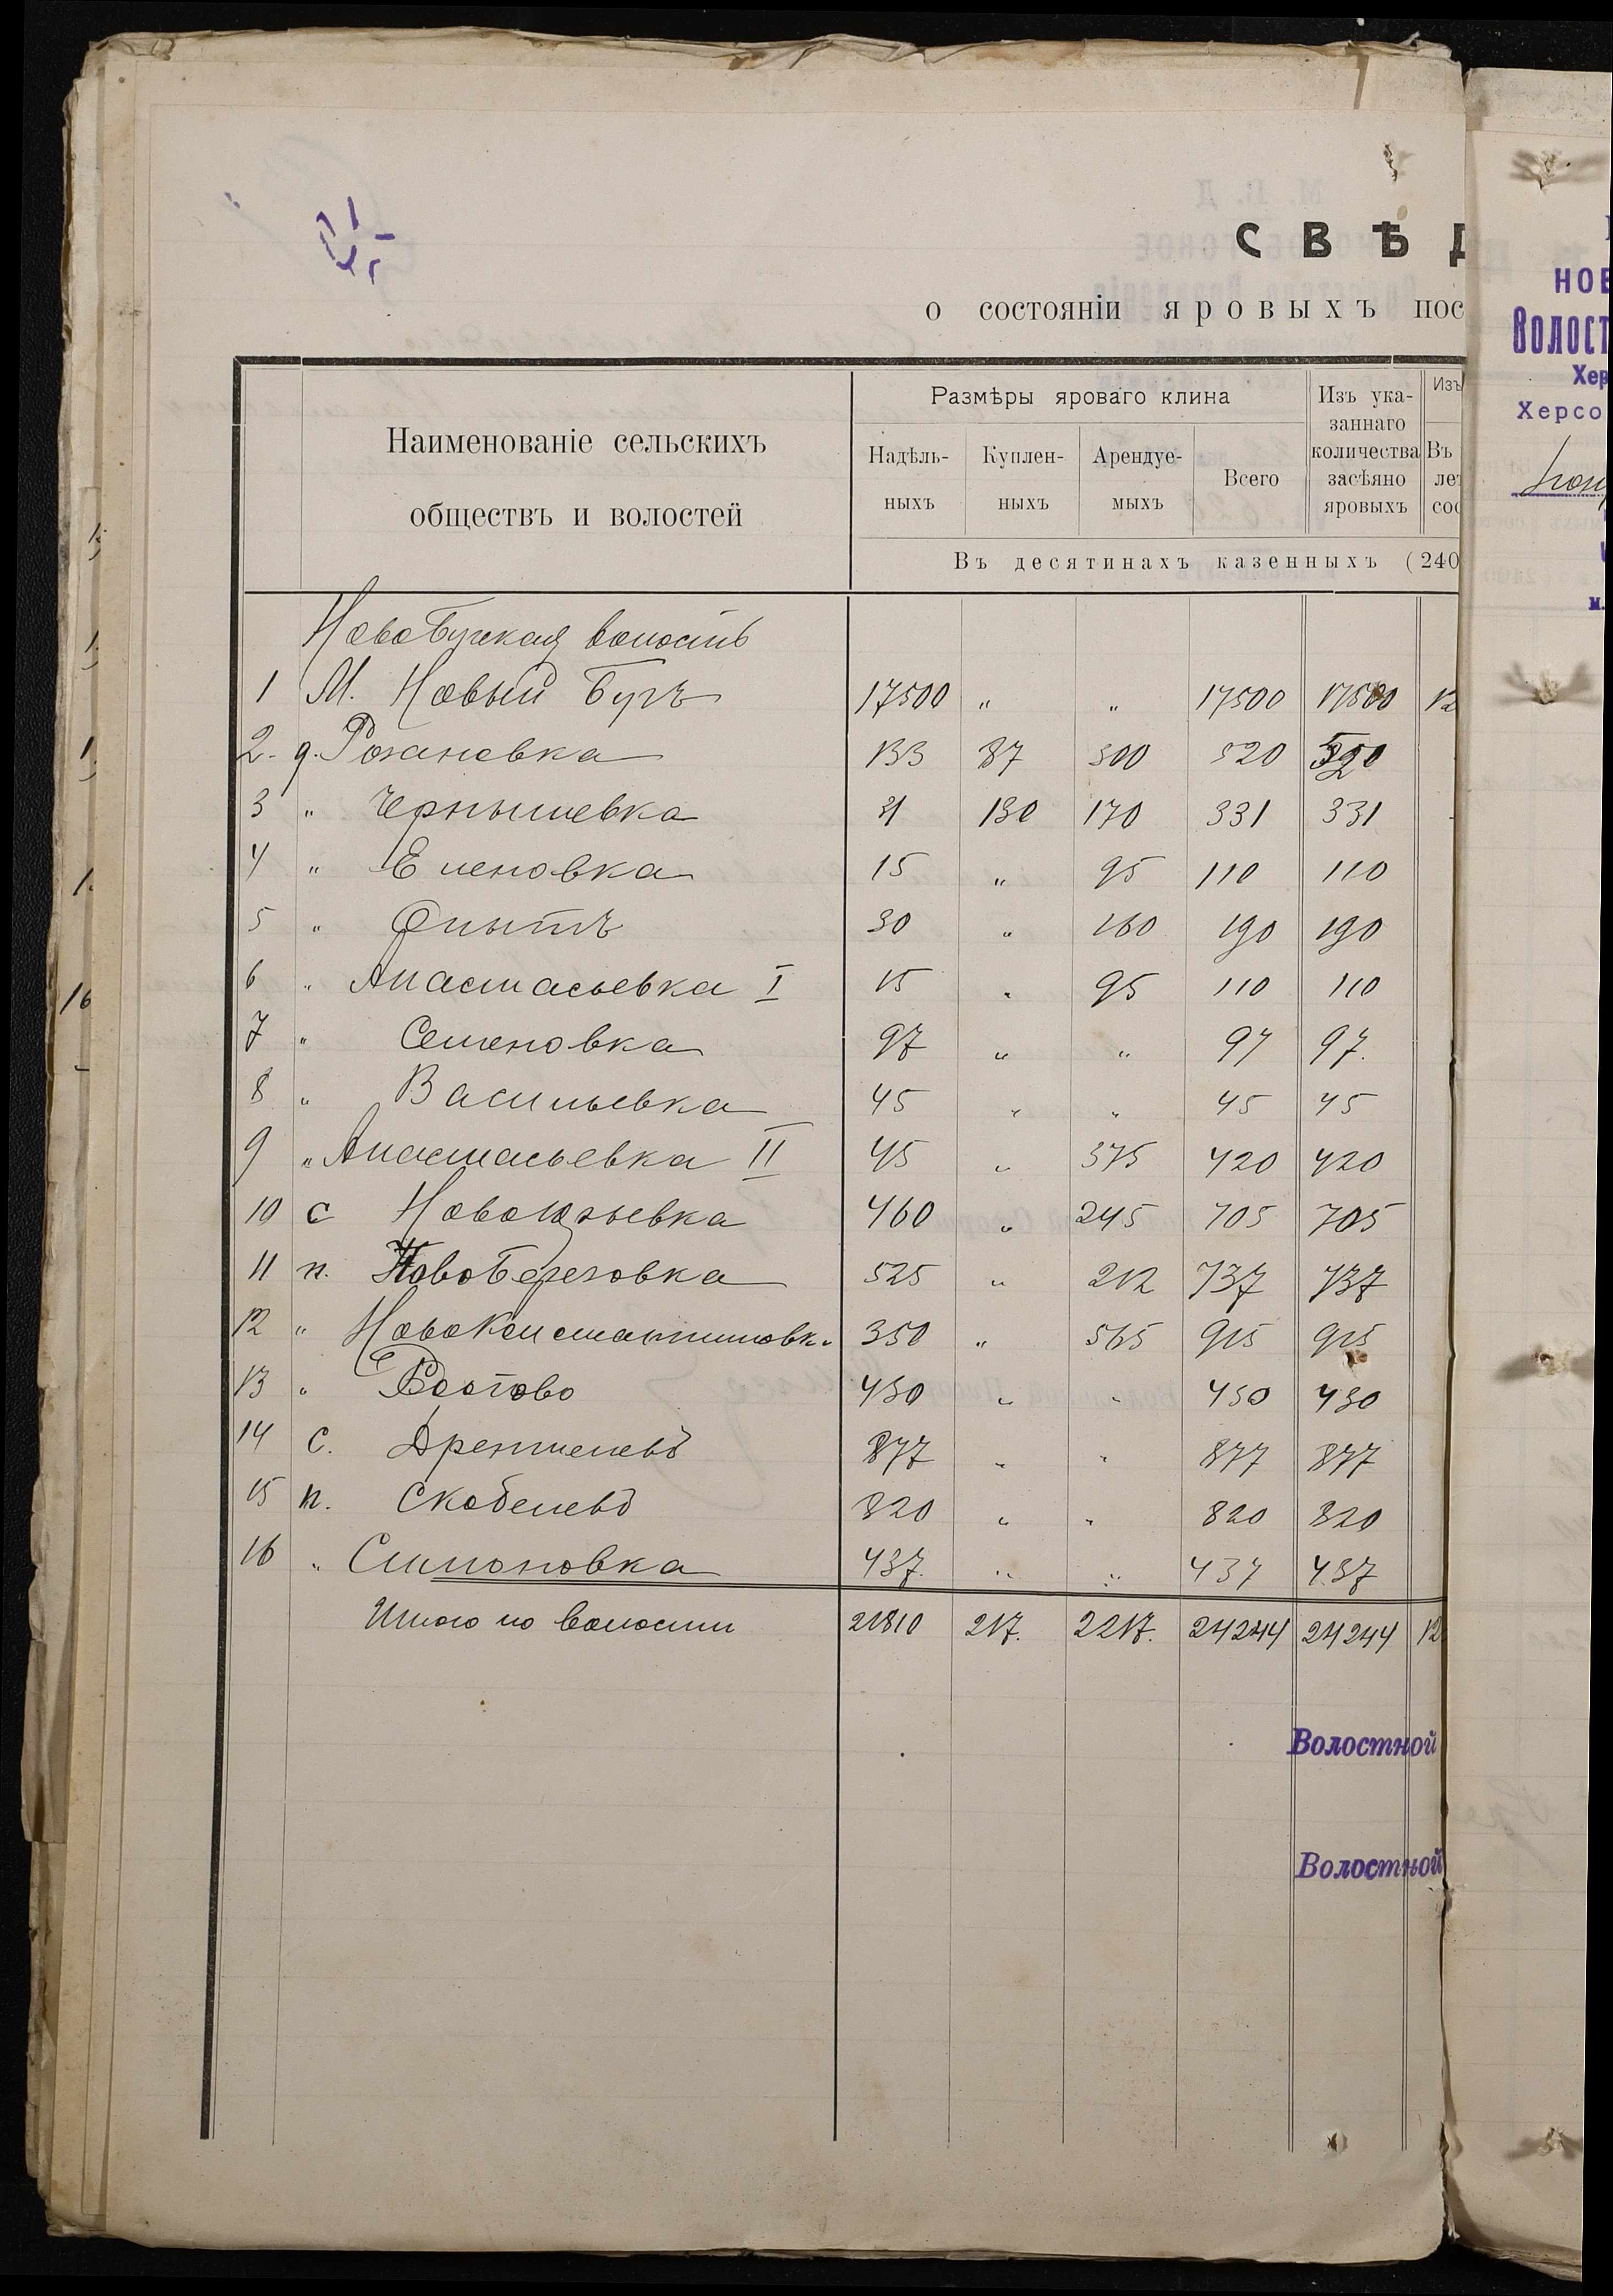 СВѢД
о состояніи яровыхъ пос
Наименованіе сельскихъ обществъ и волостей
Размѣры яроваго клина
Надѣль-ныхъ Куплен-ныхъ Арендуе-мыхъ Всего
Изъ ука-заннаго количества засѣяно яровыхъ
Изъ
Въ
Въ десятинахъ казенныхъ (240
НовоБугская волость
1 М. Новый Бугъ 17500 " " 17500 17500 12
2. д. Розановка 133 87 300 520 520
3 " Чернышевка 31 130 170 331 331
4 " Еленовка 15 " 95 110 110
5 " Опытъ 30 " 160 190 190
6 " Анастасьевка I 15 " 95 110 110
7 " Семеновка 97 " " 97 97.
8 " Васильевка 45 " " 45 45
9 " Анастасьевка II 45 " 375 420 420
10 с Новоюрьевка 460 " 245 705 705
11 п. НовоБерезовка 525 " 212 737 737
12 " НовоКонстантиновк. 350 " 565 915 915
13 " 430 " " 430 430
14 с. 877 " " 877 877
15 п. Скобелевъ 820 " " 820 820
16 " Симоновка 437. " " 437 437
Итого по волости 21810 217. 2217. 24244 24244 12
Волостной
Волостной
НОВ
Волост
Хер
Херсо